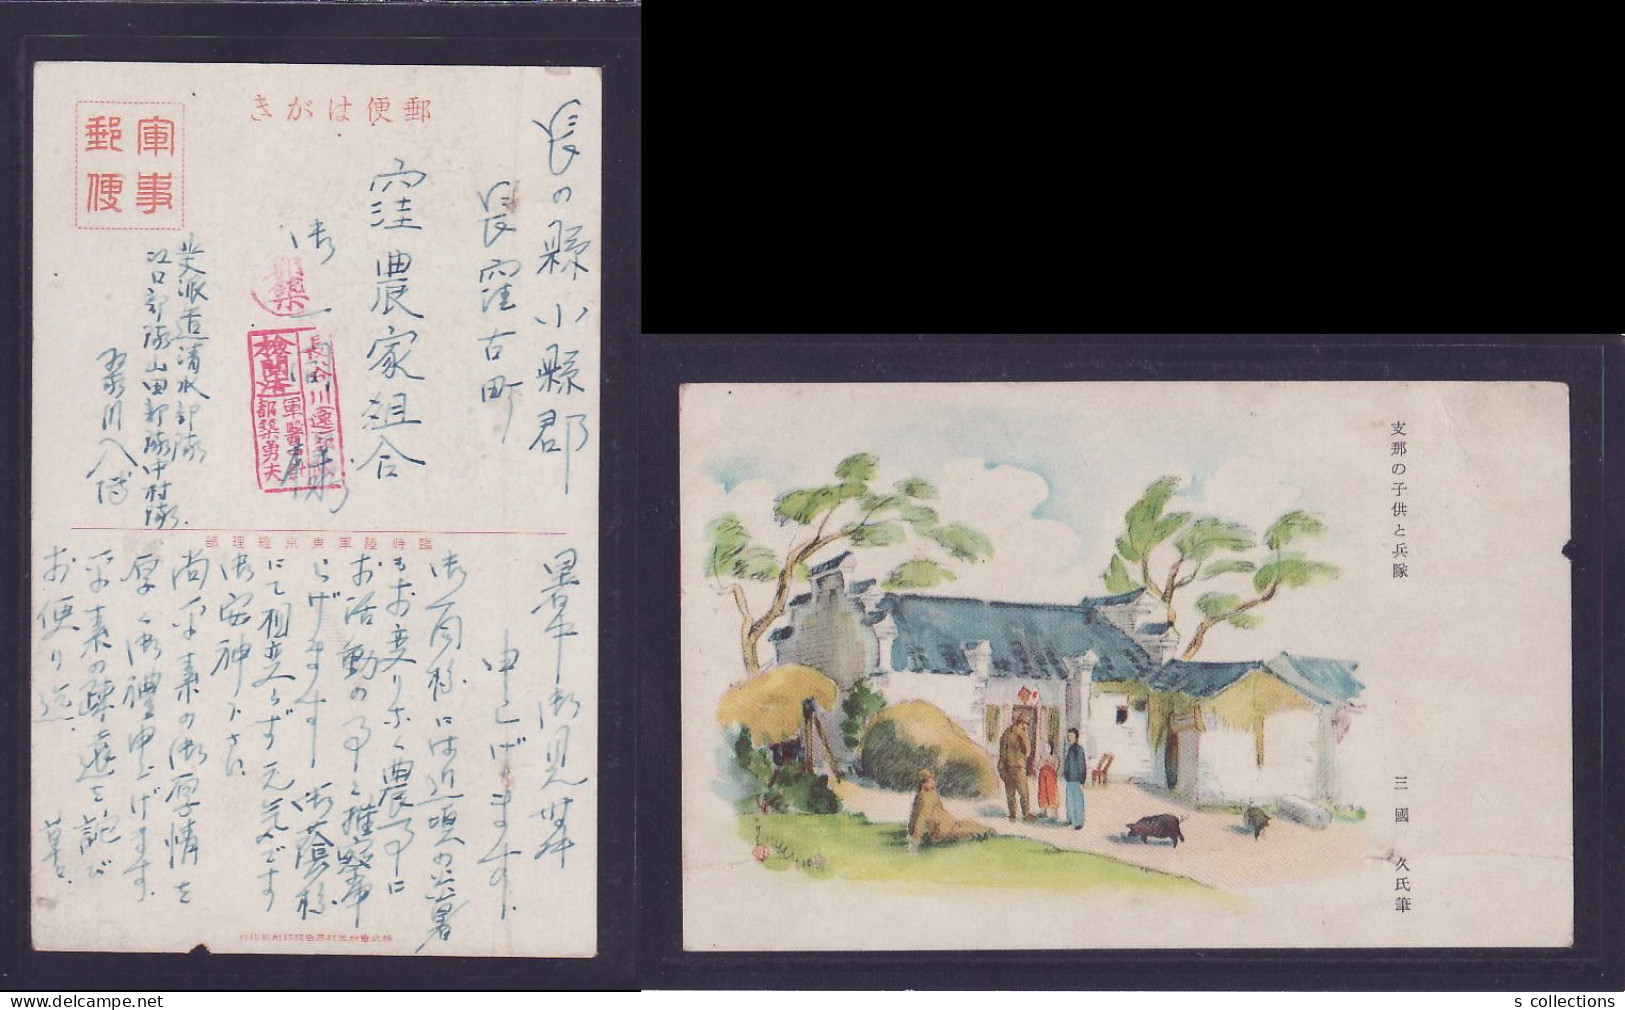 郵便はがき
軍事
郵便
長の縣小縣郡
長窪古町
窪農家組合
御一同様
都築
検閲済
軍醫
都築勇夫
北支派遣清水部隊
江口部隊山田部隊中村隊
臨時陸軍東京經理部
暑中御見舞
申し上げます
御一同様には近頃の炎暑
もお変りなく農事に
お活動の事と推察
らげます 御蔭様
にて相変らず元気です
御安神下さい
尚平素の御厚情を
厚く御禮申上げます
平素の疎遠を詑び
お便り迄 草々
支那の子供と兵隊
三國 久氏筆
s collections